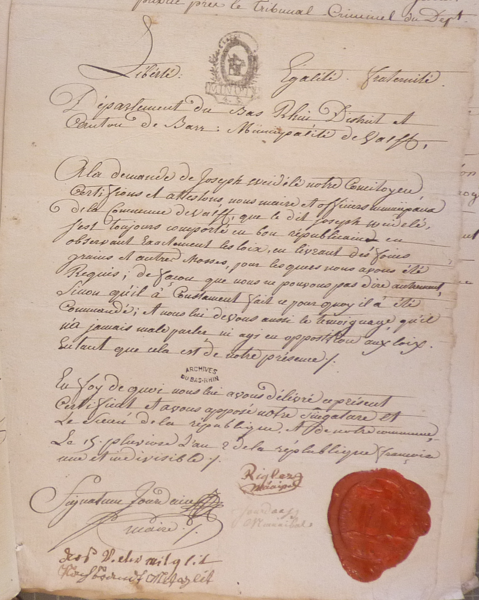 près le Tribunal Criminel du Dept
Liberté Egalité fraternité
Département du Bas Rhin District et
Canton de Barr: Municipalité de Valff,
A la demande de Joseph notre Concitoyen
Certifions et attestons, nous maire et officiers municipaux
de la Commune de Valff, que le dit Joseph
s'est toujours comporté en bon républicain en
observant Exactement les loix, en livrant des foins
grains et autres Choses, pour lesques nous avons été
Requis; de façon que nous ne pouvons pas dire autrement,
Sinon qu'il à Constament fait ce pour quoy il à été
Commandé; et nous lui devons aussi le témoignage, qu'il
n'à jamais male parlee ni agi en opposition aux loix:
Entant que cela est de notre présence /.
ARCHIVES
DU BAS-RHIN
En foy de quoi nous lui avons délivré ce présent
Certificat et avons apposé notre Singature et
Le de la république, et de notre commune,
Le 15 pluviose L'an 2 de la république françoise
une et indivisible /.
Signature Jourdain
maire /.